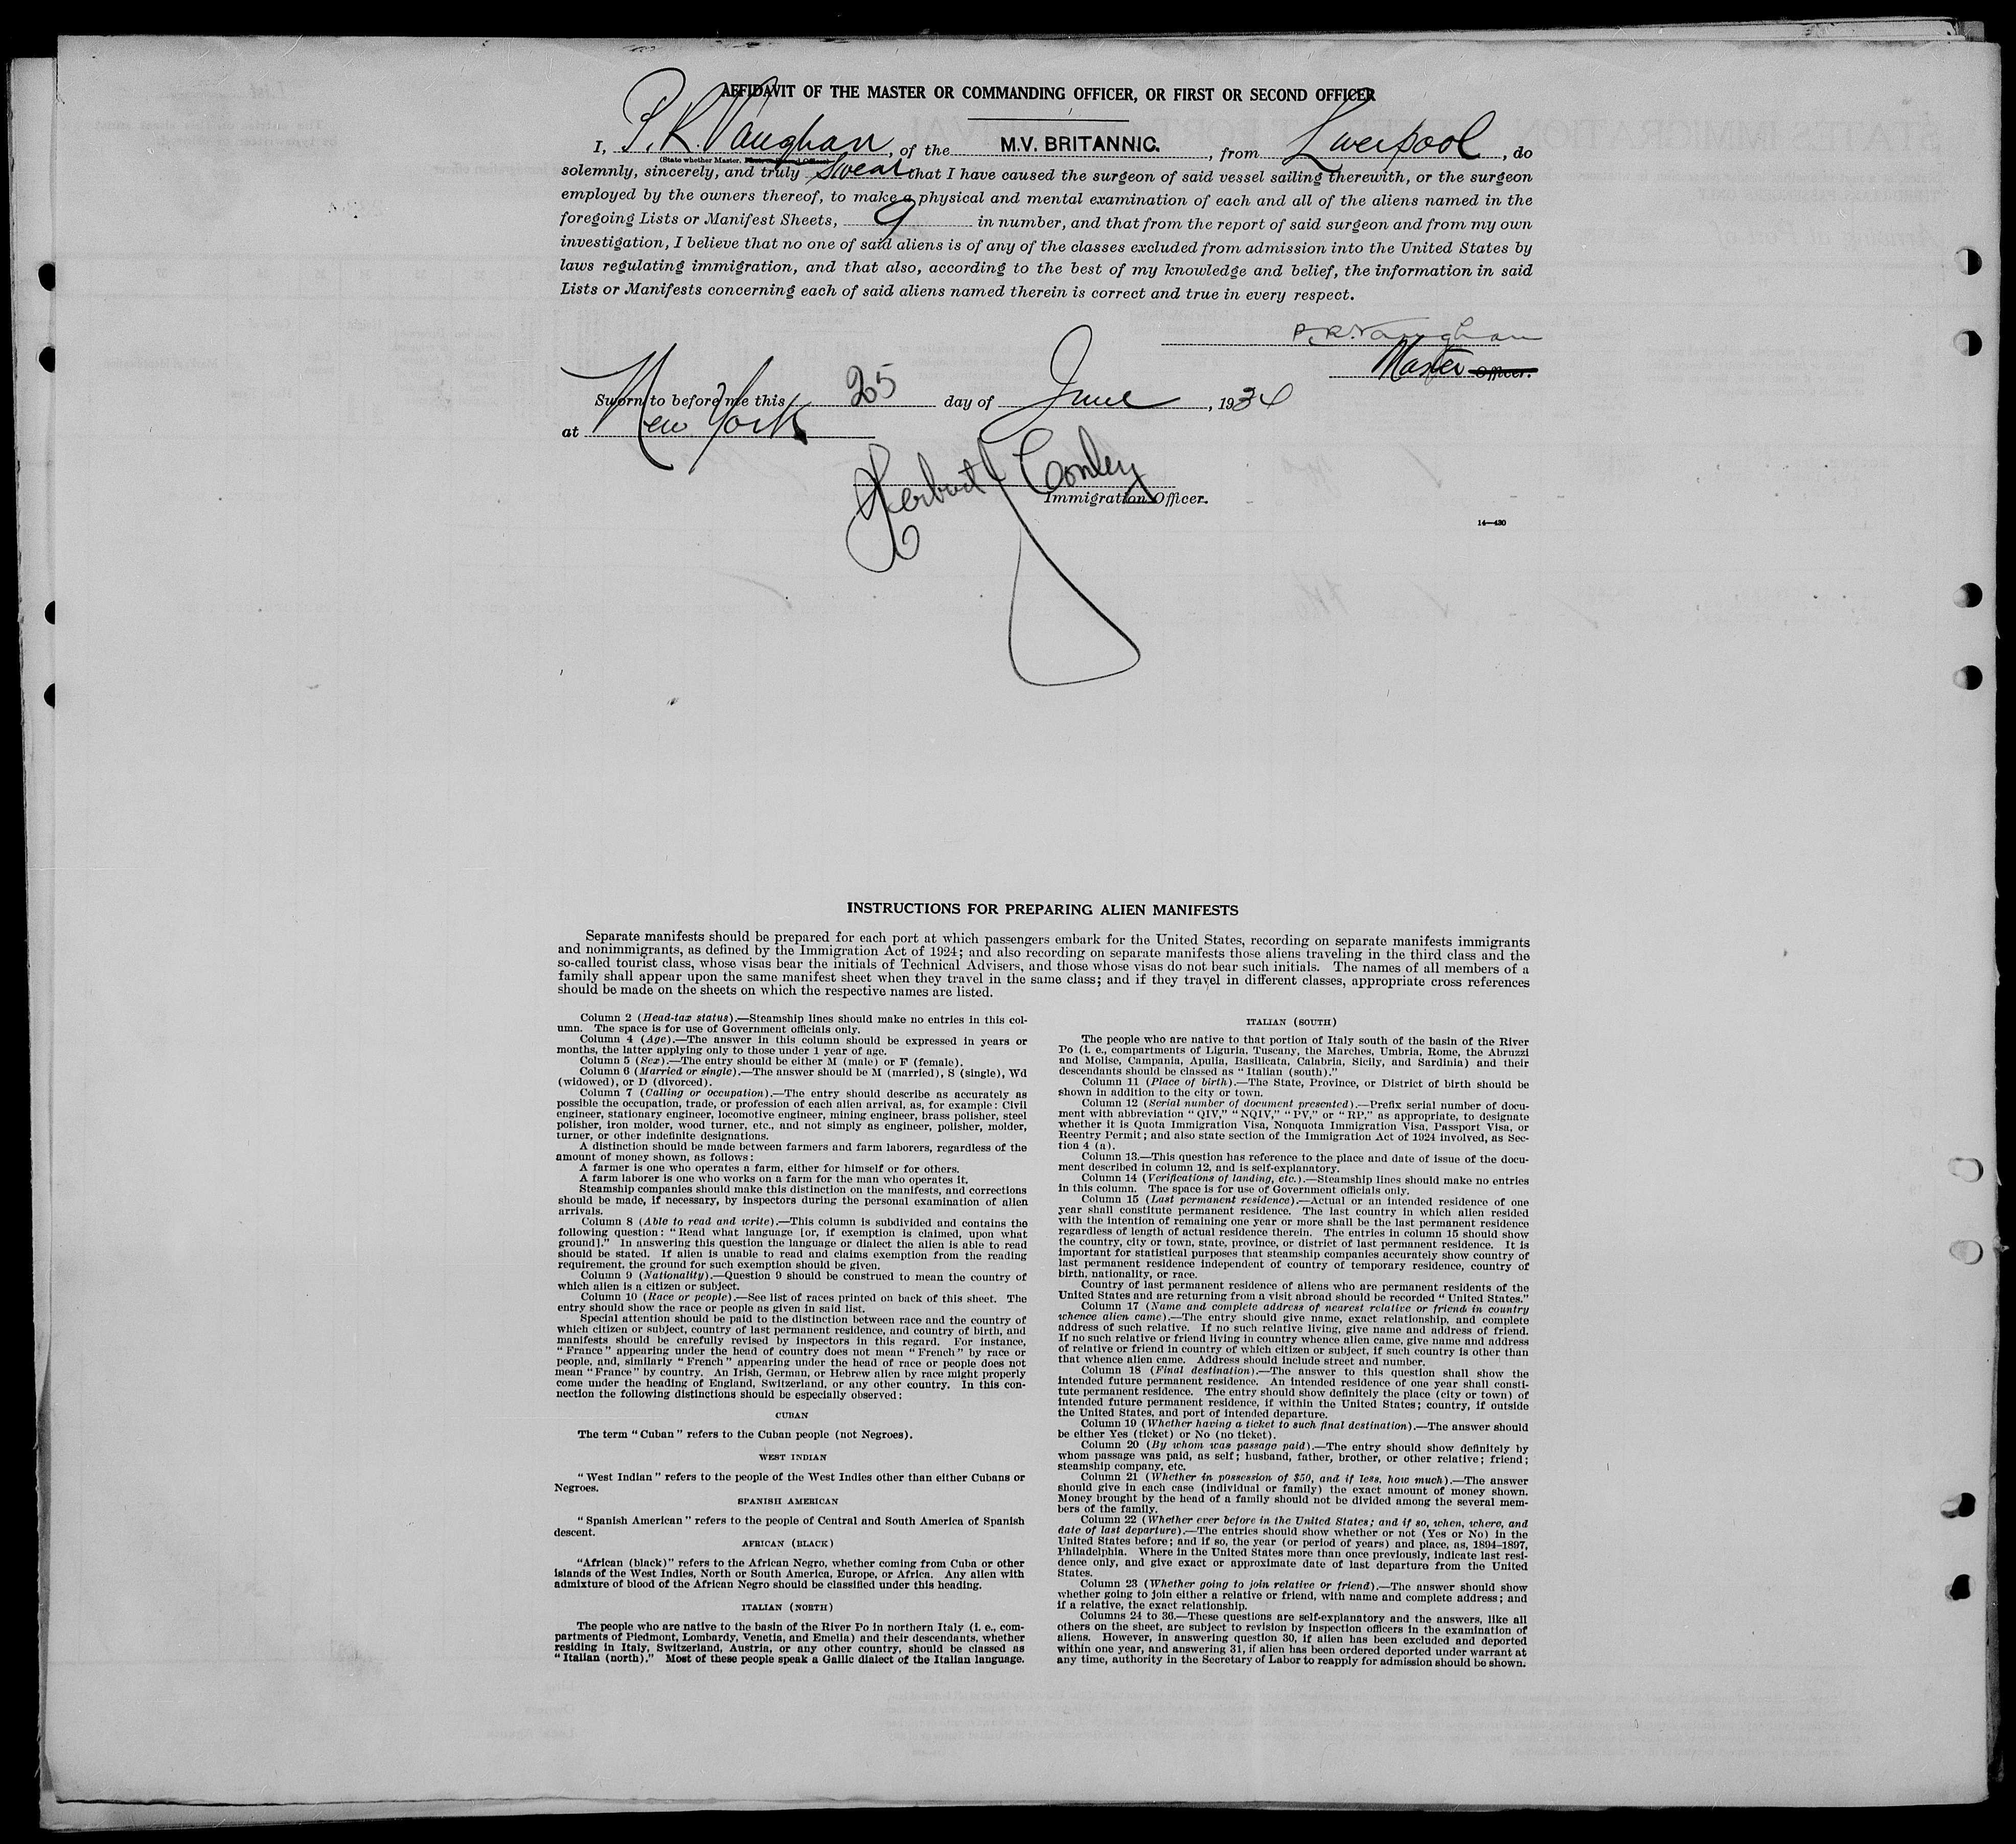 AFFIDAVIT OF THE MASTER OR COMMANDING OFFICER, OR FIRST OR SECOND OFFICER
I, P. R. Vaughan, of the M.V. BRITANNIC., from Liverpool, do
(State whether Master,
solemnly, sincerely, and truly swear that I have caused the surgeon of said vessel sailing therewith, or the surgeon
employed by the owners thereof, to make a physical and mental examination of each and all of the aliens named in the
foregoing Lists or Manifest Sheets, 9 in number, and that from the report of said surgeon and from my own
investigation, I believe that no one of said aliens is of any of the classes excluded from admission into the United States by
laws regulating immigration, and that also, according to the best of my knowledge and belief, the information in said
Lists or Manifests concerning each of said aliens named therein is correct and true in every respect.
P. R. Vaughan
Master Officer.
Sworn to before me this 25 day of June, 1934
at New York
Herbert J Conley
Immigration Officer.
14—430
INSTRUCTIONS FOR PREPARING ALIEN MANIFESTS
Separate manifests should be prepared for each port at which passengers embark for the United States, recording on separate manifests immigrants
and nonimmigrants, as defined by the Immigration Act of 1924; and also recording on separate manifests those aliens traveling in the third class and the
so-called tourist class, whose visas bear the initials of Technical Advisers, and those whose visas do not bear such initials. The names of all members of a
family shall appear upon the same manifest sheet when they travel in the same class; and if they travel in different classes, appropriate cross references
should be made on the sheets on which the respective names are listed.
Column 2 (Head-tax status).—Steamship lines should make no entries in this col-
umn. The space is for use of Government officials only.
Column 4 (Age).—The answer in this column should be expressed in years or
months, the latter applying only to those under 1 year of age.
Column 5 (Sex).—The entry should be either M (male) or F (female).
Column 6 (Married or single).—The answer should be M (married), S (single), Wd
(widowed), or D (divorced).
Column 7 (Calling or occupation).—The entry should describe as accurately as
possible the occupation, trade, or profession of each alien arrival, as, for example: Civil
engineer, stationary engineer, locomotive engineer, mining engineer, brass polisher, steel
polisher, iron molder, wood turner, etc., and not simply as engineer, polisher, molder,
turner, or other indefinite designations.
A distinction should be made between farmers and farm laborers, regardless of the
amount of money shown, as follows:
A farmer is one who operates a farm, either for himself or for others.
A farm laborer is one who works on a farm for the man who operates it.
Steamship companies should make this distinction on the manifests, and corrections
should be made, if necessary, by inspectors during the personal examination of alien
arrivals.
Column 8 (Able to read and write).—This column is subdivided and contains the
following question: "Read what language [or, if exemption is claimed, upon what
ground]." In answering this question the language or dialect the alien is able to read
should be stated. If alien is unable to read and claims exemption from the reading
requirement, the ground for such exemption should be given.
Column 9 (Nationality).—Question 9 should be construed to mean the country of
which alien is a citizen or subject.
Column 10 (Race or people).—See list of races printed on back of this sheet. The
entry should show the race or people as given in said list.
Special attention should be paid to the distinction between race and the country of
which citizen or subject, country of last permanent residence, and country of birth, and
manifests should be carefully revised by inspectors in this regard. For instance,
"France" appearing under the head of country does not mean "French" by race or
people, and, similarly "French" appearing under the head of race or people does not
mean "France" by country. An Irish, German, or Hebrew alien by race might properly
come under the heading of England, Switzerland, or any other country. In this con-
nection the following distinctions should be especially observed:
CUBAN
The term "Cuban" refers to the Cuban people (not Negroes).
WEST INDIAN
"West Indian" refers to the people of the West Indies other than either Cubans or
Negroes.
SPANISH AMERICAN
"Spanish American" refers to the people of Central and South America of Spanish
descent.
AFRICAN (BLACK)
"African (black)" refers to the African Negro, whether coming from Cuba or other
islands of the West Indies, North or South America, Europe, or Africa. Any alien with
admixture of blood of the African Negro should be classified under this heading.
ITALIAN (NORTH)
The people who are native to the basin of the River Po in northern Italy (i. e., com-
partments of Piedmont, Lombardy, Venetia, and Emelia) and their descendants, whether
residing in Italy, Switzerland, Austria, or any other country, should be classed as
"Italian (north)." Most of these people speak a Gallic dialect of the Italian language.
ITALIAN (SOUTH)
The people who are native to that portion of Italy south of the basin of the River
Po (i. e., compartments of Liguria, Tuscany, the Marches, Umbria, Rome, the Abruzzi
and Molise, Campania, Apulia, Basilicata, Calabria, Sicily, and Sardinia) and their
descendants should be classed as "Italian (south)."
Column 11 (Place of birth).—The State, Province, or District of birth should be
shown in addition to the city or town.
Column 12 (Serial number of document presented).—Prefix serial number of docu-
ment with abbreviation "QIV," "NQIV," "PV," or "RP," as appropriate, to designate
whether it is Quota Immigration Visa, Nonquota Immigration Visa, Passport Visa, or
Reentry Permit; and also state section of the Immigration Act of 1924 involved, as Sec-
tion 4 (a).
Column 13.—This question has reference to the place and date of issue of the docu-
ment described in column 12, and is self-explanatory.
Column 14 (Verifications of landing, etc.).—Steamship lines should make no entries
in this column. The space is for use of Government officials only.
Column 15 (Last permanent residence).—Actual or an intended residence of one
year shall constitute permanent residence. The last country in which alien resided
with the intention of remaining one year or more shall be the last permanent residence
regardless of length of actual residence therein. The entries in column 15 should show
the country, city or town, state, province, or district of last permanent residence. It is
important for statistical purposes that steamship companies accurately show country of
last permanent residence independent of country of temporary residence, country of
birth, nationality, or race.
Country of last permanent residence of aliens who are permanent residents of the
United States and are returning from a visit abroad should be recorded "United States."
Column 17 (Name and complete address of nearest relative or friend in country
whence alien came).—The entry should give name, exact relationship, and complete
address of such relative. If no such relative living, give name and address of friend.
If no such relative or friend living in country whence alien came, give name and address
of relative or friend in country of which citizen or subject, if such country is other than
that whence alien came. Address should include street and number.
Column 18 (Final destination).—The answer to this question shall show the
intended future permanent residence. An intended residence of one year shall consti-
tute permanent residence. The entry should show definitely the place (city or town) of
intended future permanent residence, if within the United States; country, if outside
the United States, and port of intended departure.
Column 19 (Whether having a ticket to such final destination).—The answer should
be either Yes (ticket) or No (no ticket).
Column 20 (By whom was passage paid).—The entry should show definitely by
whom passage was paid, as self; husband, father, brother, or other relative; friend;
steamship company, etc.
Column 21 (Whether in possession of $50, and if less, how much).—The answer
should give in each case (individual or family) the exact amount of money shown.
Money brought by the head of a family should not be divided among the several mem-
bers of the family.
Column 22 (Whether ever before in the United States; and if so, when, where, and
date of last departure).—The entries should show whether or not (Yes or No) in the
United States before; and if so, the year (or period of years) and place, as, 1894–1897,
Philadelphia. Where in the United States more than once previously, indicate last resi-
dence only, and give exact or approximate date of last departure from the United
States.
Column 23 (Whether going to join relative or friend).—The answer should show
whether going to join either a relative or friend, with name and complete address; and
if a relative, the exact relationship.
Columns 24 to 36.—These questions are self-explanatory and the answers, like all
others on the sheet, are subject to revision by inspection officers in the examination of
aliens. However, in answering question 30, if alien has been excluded and deported
within one year, and answering 31, if alien has been ordered deported under warrant at
any time, authority in the Secretary of Labor to reapply for admission should be shown.